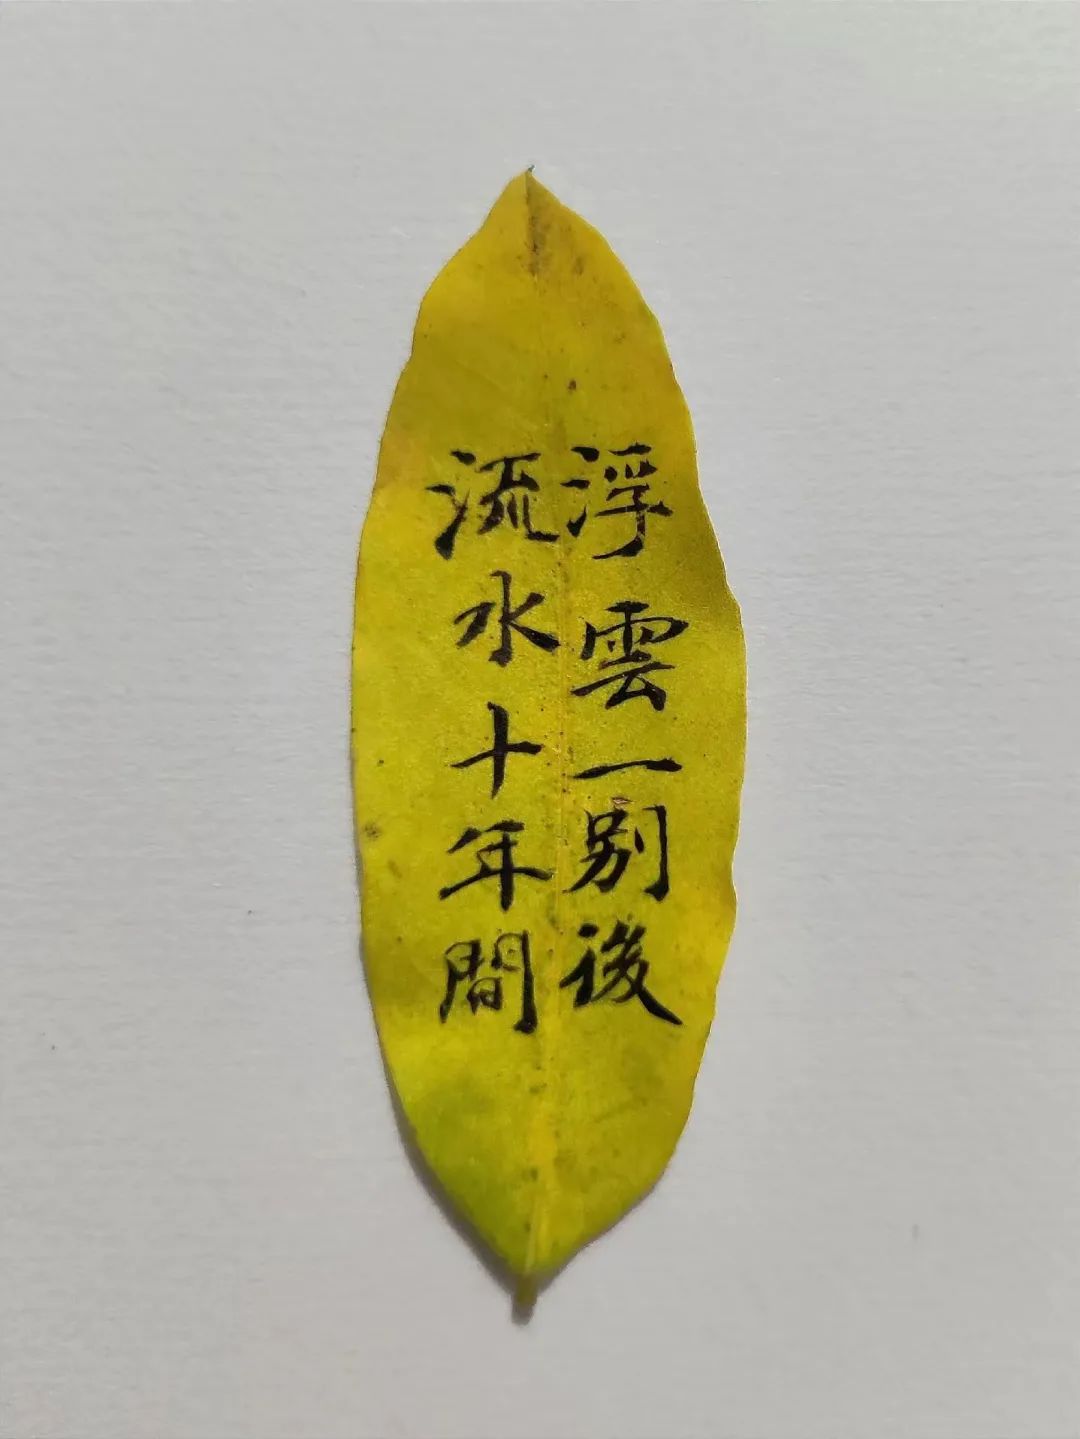 浮雲一别後
流水十年間